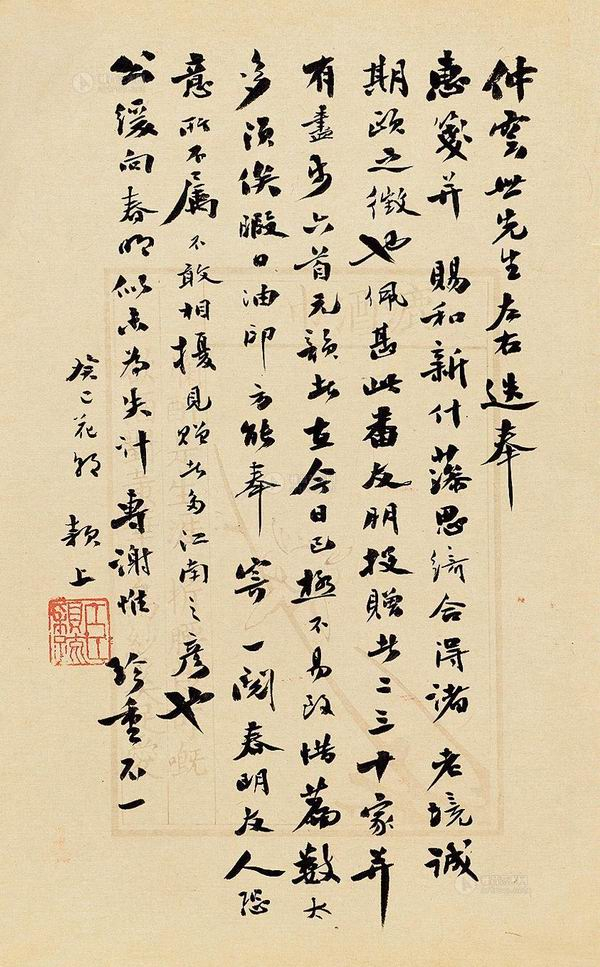 仲雲世先生左右迭奉
惠箋并 賜和新什藻思綺合得諸 老境誠
期頤之徵也佩甚此番友朋投贈者二三十家并
有盡步六首元韻者在今日已極不易致惜篇數太
多須俟暇日油印方能奉 寄一閱春明友人
意所不屬不敢相擾見贈者多江南之彥也
公緩向春明似未為失計專謝惟 珍重不一
癸巳花朝 穎上